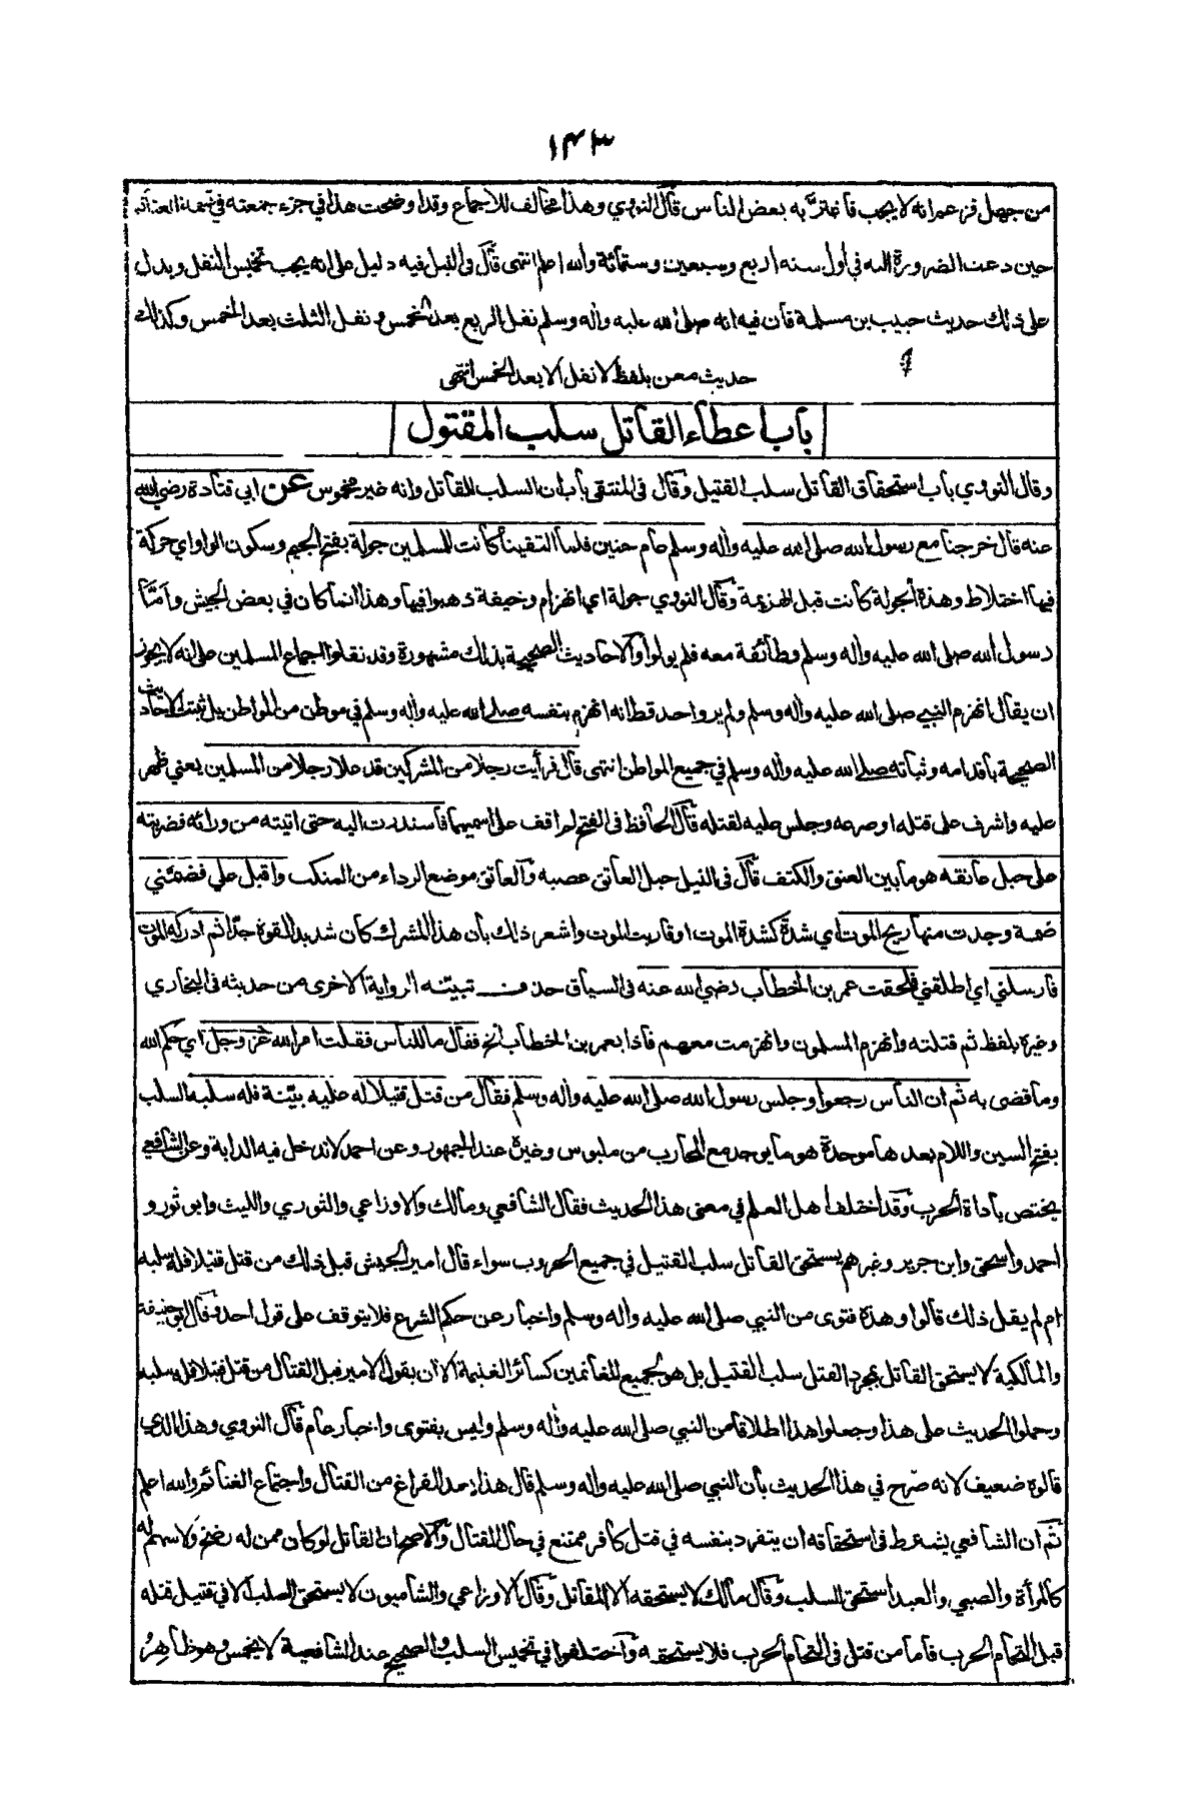 ١٤٣
من جهل فزعم انه لا يجب فاغتر به بعض الناس قال النووي وهذا مخالف للاجماع وقد اوضحت هذا في جزء جمعته في قسمة الغنائم
حين دعت الضرورة اليه في اول سنه اربع وسبعين وستمائة والله اعلم انتهى قال في النيل فيه دليل على انه يجب تخميس النفل ويدل
على ذلك حديث حبيب بن مسلمة فان فيه انه صلى الله عليه واله وسلم نفل الربع بعد الخمس و نفل الثلث بعد الخمس وكذلك
حديث معن بلفظ لا نفل الا بعد الخمس انتهى
باب اعطاء القاتل سلب المقتول
وقال النووي باب استحقاق القاتل سلب القتيل وقال في المنتقى باب ان السلب للقاتل وانه غير مخموس عن ابي قتادة رضي الله
عنه قال خرجنا مع رسول الله صلى الله عليه واله وسلم عام حنين فلما التقينا كانت للمسلمين جولة بفتح الجيم وسكون الواو اي حركة
فيها اختلاط وهذه الجولة كانت قبل الهزيمة وقال النووي جولة اي انهزام وخيفة ذهبوا فيها وهذا انما كان في بعض الجيش واما
رسول الله صلى الله عليه واله وسلم وطائفة معه فلم يولوا والاحاديث الصحيحة بذلك مشهورة وقد نقلوا اجماع المسلمين على انه لا يجوز
ان يقال انهزم النبي صلى الله عليه واله وسلم ولم يرو احد قط انه انهزم بنفسه صلى الله عليه واله وسلم في موطن من المواطن بل ثبتت الاحاديث
الصحيحة باقدامه وثباته صلى الله عليه واله وسلم في جميع المواطن انتهى قال فرأيت رجلا من المشركين قد علا رجلا من المسلمين يعني ظهر
عليه واشرف على قتله او صرعه وجلس عليه لقتله قال الحافظ في الفتح لم اقف على اسميهما فاستدرت اليه حتى اتيته من ورائه فضربته
على حبل عاتقه هو ما بين العنق والكتف قال في النيل حبل العاتق عصبه والعاتق موضع الرداء من المنكب واقبل علي فضمني
ضمة وجدت منها ريح الموت اي شدة كشدة الموت او قاربت الموت واشعر ذلك بان هذا المشرك كان شديد القوة جدا ثم ادركه الموت
فارسلني اي اطلقني فلحقت عمر بن الخطاب رضي الله عنه في السياق حذف تبينه الرواية الاخرى من حديثه في البخاري
وغيره بلفظ ثم قتلته وانهزم المسلمون وانهزمت معهم فاذا بعمر بن الخطاب الخ فقال ما للناس فقلت امر الله عز وجل اي حكم الله
وما قضى به ثم ان الناس رجعوا وجلس رسول الله صلى الله عليه واله وسلم فقال من قتل قتيلا له عليه بينة فله سلبه السلب
بفتح السين واللام بعدها موحدة هو ما يوجد مع المحارب من ملبوس وغيره عند الجمهور وعن احمد لا تدخل فيه الدابة وعن الشافعي
يختص باداة الحرب وقد اختلف اهل العلم في معنى هذا الحديث فقال الشافعي ومالك والاوزاعي والثوري والليث وابو ثور و
احمد واسحق وابن جرير وغيرهم يستحق القاتل سلب القتيل في جميع الحروب سواء قال امير الجيش قبل ذلك من قتل قتيلا فله سلبه
ام لم يقل ذلك قالوا وهذه فتوى من النبي صلى الله عليه واله وسلم واخبار عن حكم الشرع فلا يتوقف على قول احد وقال ابو حنيفة
والمالكية لا يستحق القاتل بمجرد القتل سلب القتيل بل هو لجميع الغانمين كسائر الغنيمة الا ان يقول الامير قبل القتال من قتل قتيلا فله سلبه
وحملوا الحديث على هذا وجعلوا هذا اطلاقا من النبي صلى الله عليه واله وسلم وليس بفتوى واخبار عام قال النووي وهذا الذي
قالوه ضعيف لانه صرح في هذا الحديث بان النبي صلى الله عليه واله وسلم قال هذا بعد الفراغ من القتال واجتماع الغنائم والله اعلم
ثم ان الشافعي يشترط في استحقاقه ان يتفرد بنفسه في قتل كافر ممتنع في حال القتال والاصح ان القاتل لو كان ممن له رضخ ولا سهم له
كالمرأة والصبي والعبد استحق السلب وقال مالك لا يستحقه الا المقاتل وقال الاوزاعي والشاميون لا يستحق السلب الا في قتيل قتله
قبل التحام الحرب فاما من قتل في التحام الحرب فلا يستحقه واختلفوا في تخميس السلب والصحيح عند الشافعية لا يخمس وهو ظاهر